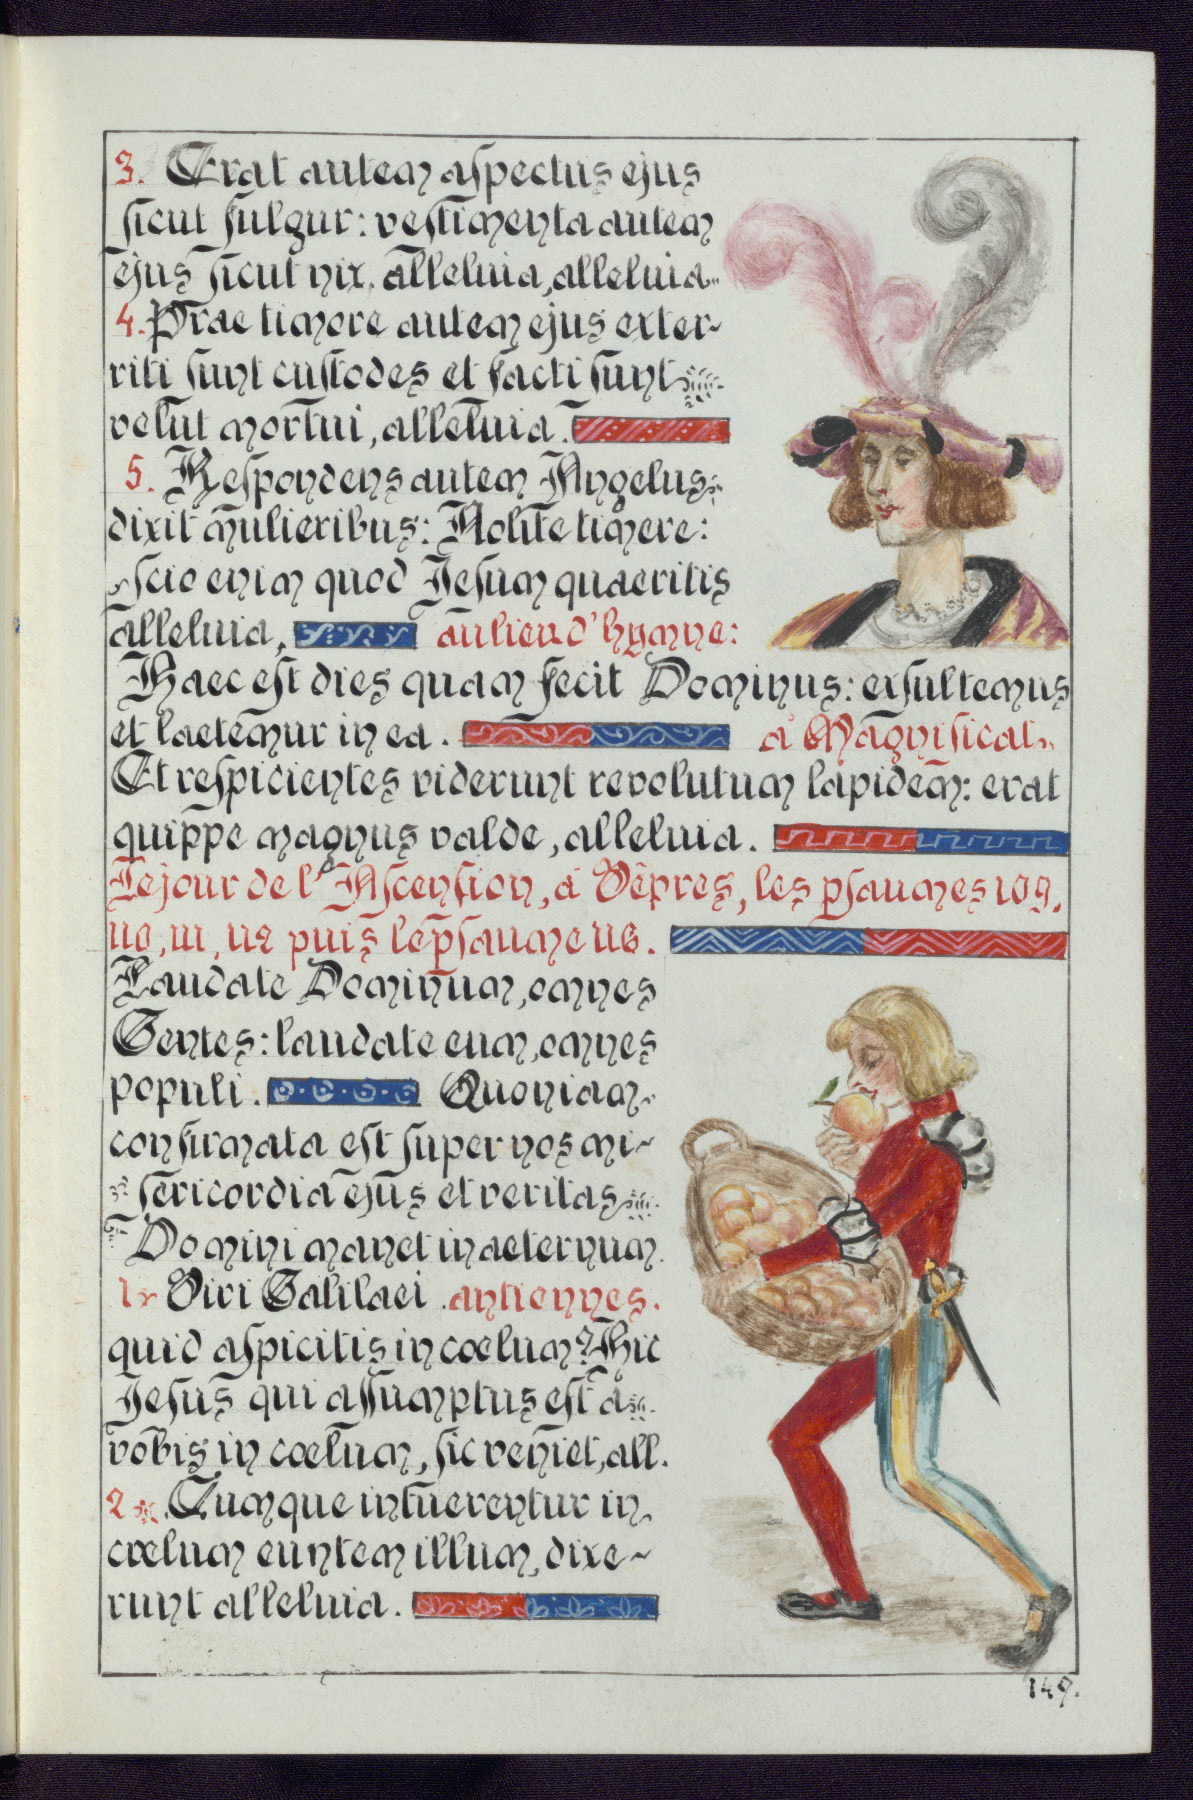 3. Erat autem aspectus ejus
sicut fulgur: vestimenta autem
ejus sicut nix, alleluia, alleluia.
4. Prae timore autem ejus exter-
riti sunt custodes et facti sunt
velut mortui, alleluia.
5. Respondens autem Angelus
dixit mulieribus: Nolite timere:
scio enim quod Jesum quaeritis
alleluia, au lieu d'hymne:
Haec est dies quam fecit Dominus: exsultemus
et laetemur in ea. à Magnificat.
Et respicientes viderunt revolutum lapidem: erat
quippe magnus valde, alleluia.
Le jour de l'Ascension, à Vêpres, les psaumes 109,
110, 111, 112 puis le psaume 116.
Laudate Dominum, omnes
Gentes: laudate eum, omnes
populi. Quoniam
confirmata est super nos mi-
sericordia ejus et veritas
Domini manet in aeternum.
1 Viri Galilaei. antiennes.
quid aspicitis in coelum? Hic
Jesus qui assumptus est a
vobis in coelum, sic veniet, all.
2 Cumque intuerentur in
coelum euntem illum, dixe-
runt alleluia.
149.